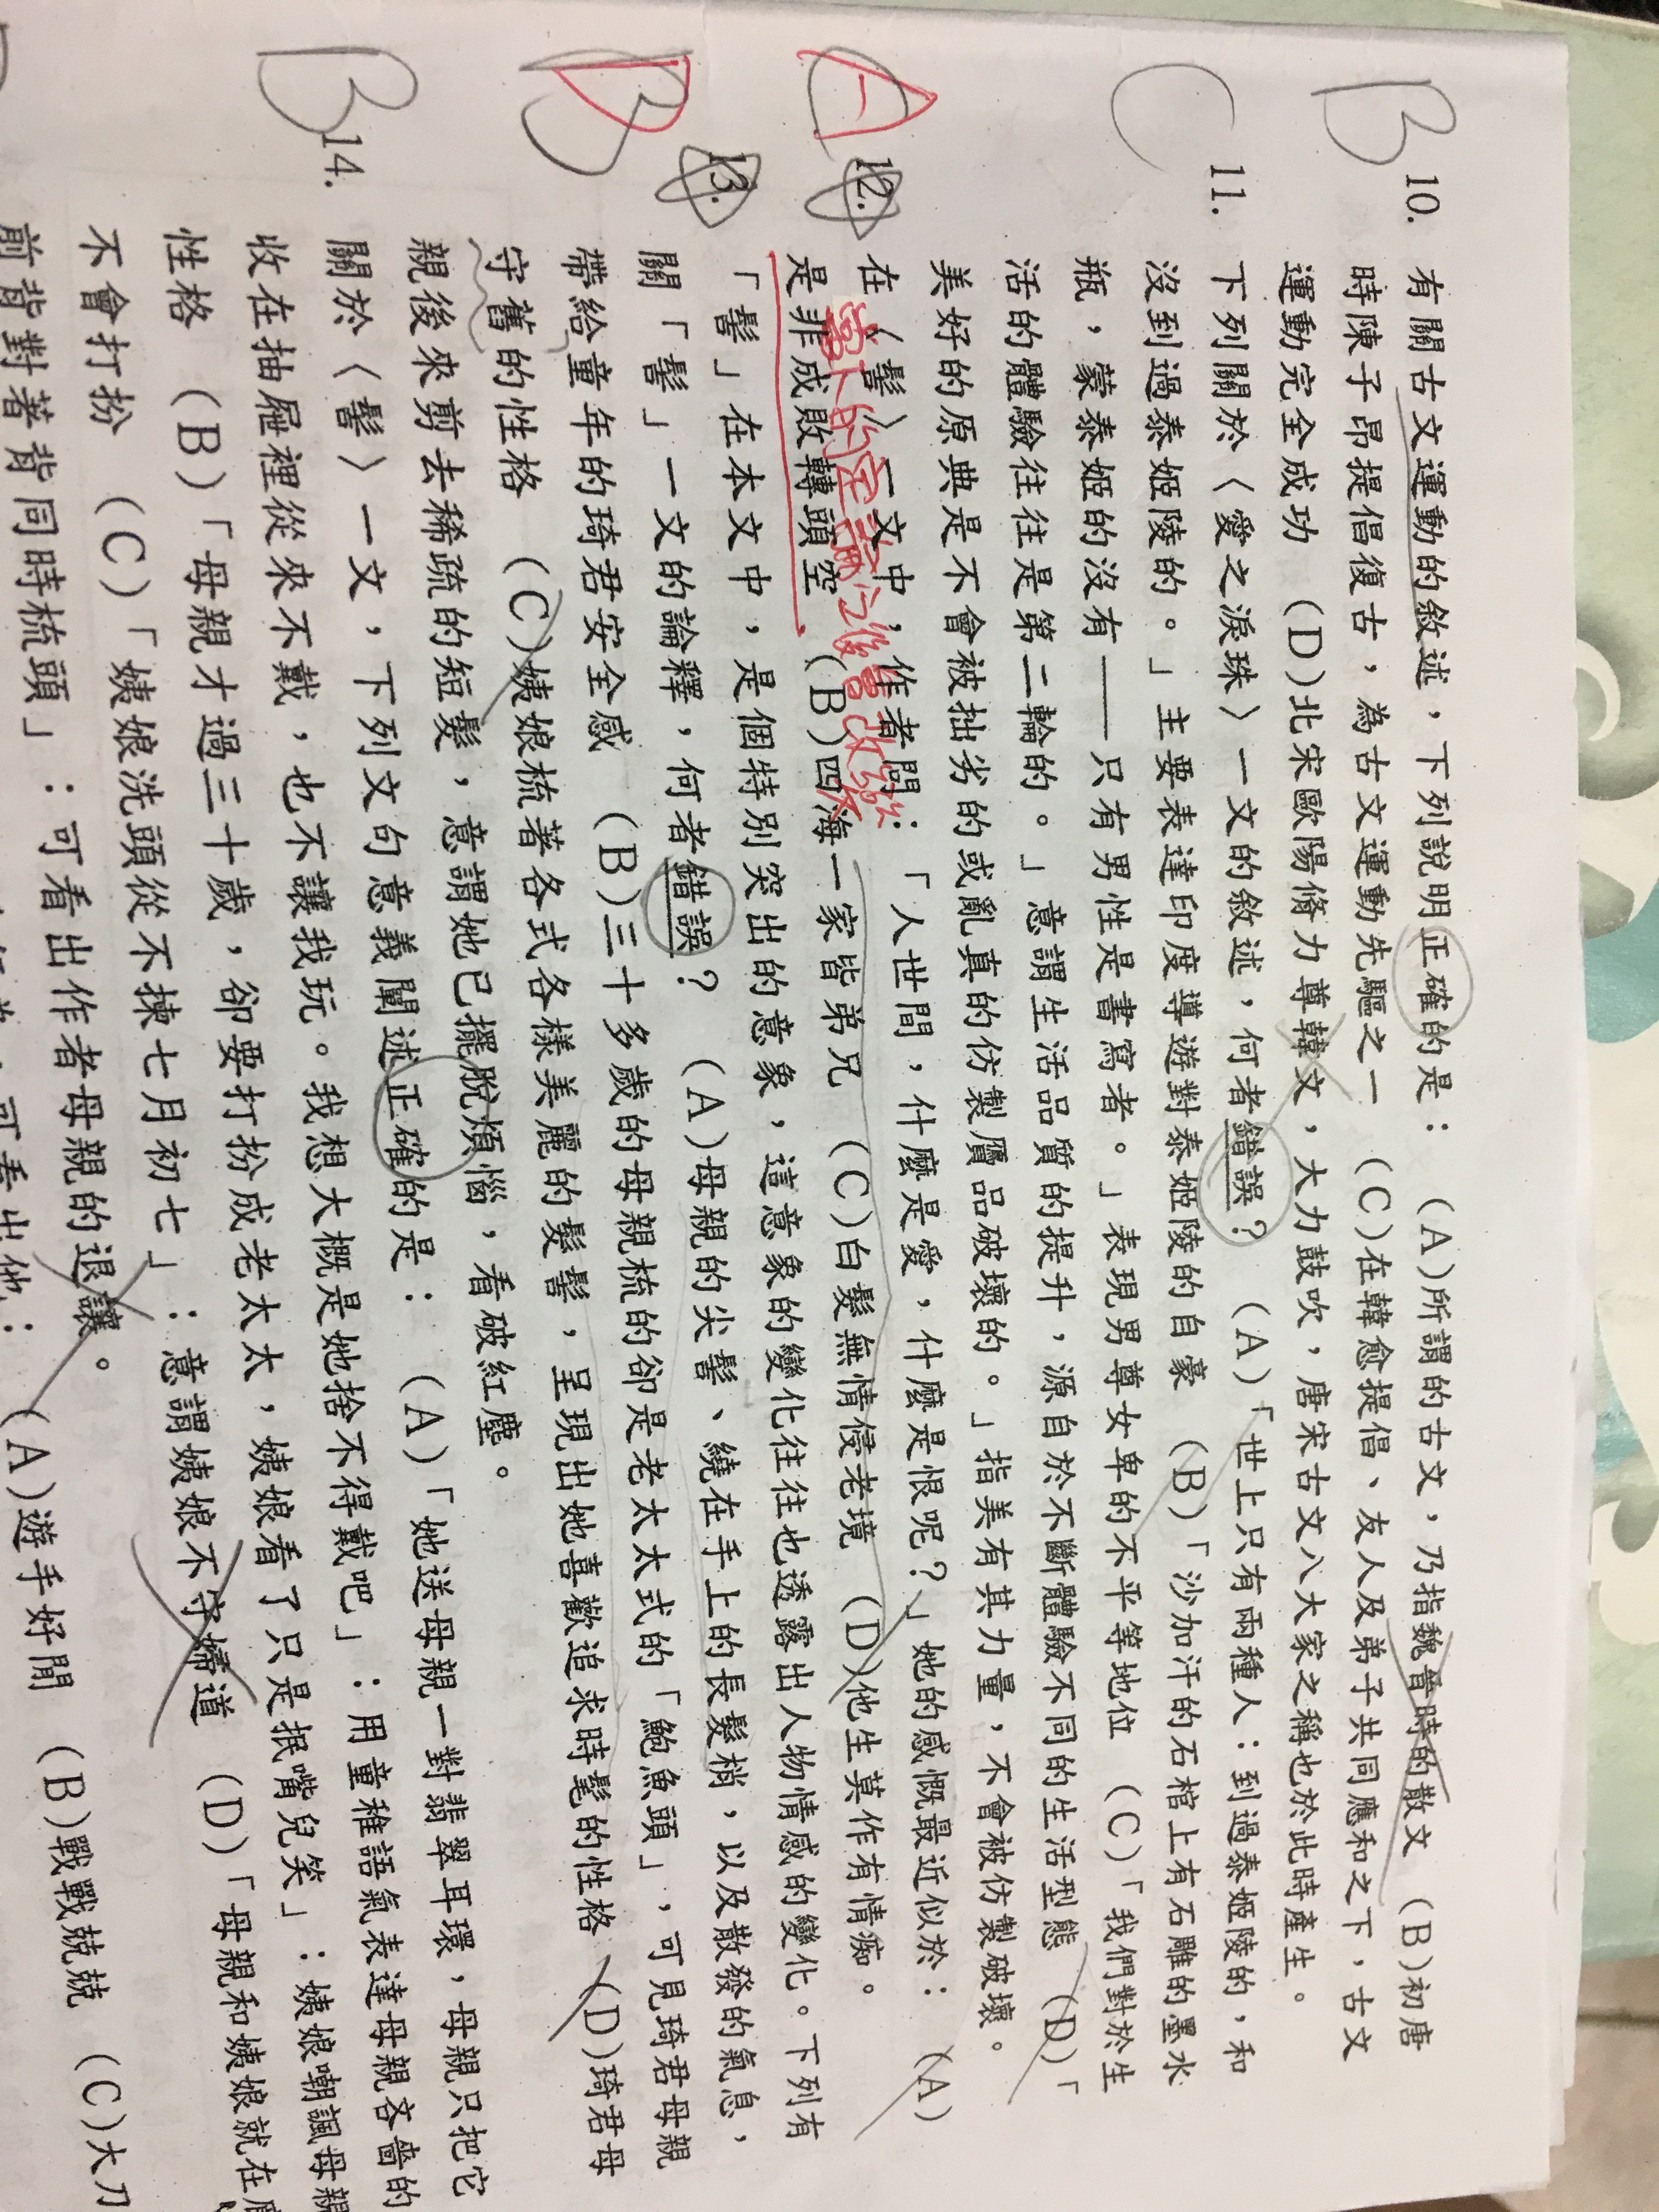 B 10. 有關古文運動的敘述，下列說明正確的是： (A)所謂的古文，乃指魏晉時的散文 (B)初唐
時陳子昂提倡復古，為古文運動先驅之一 (C)在韓愈提倡、友人及弟子共同應和之下，古文
運動完全成功 (D)北宋歐陽脩力尊韓文，大力鼓吹，唐宋古文八大家之稱也於此時產生。
C 11. 下列關於〈愛之淚珠〉一文的敘述，何者錯誤？ (A)「世上只有兩種人：到過泰姬陵的，和
沒到過泰姬陵的。」主要表達印度導遊對泰姬陵的自豪 (B)「沙加汗的石棺上有石雕的墨水
瓶，蒙泰姬的沒有——只有男性是書寫者。」表現男尊女卑的不平等地位 (C)「我們對於生
活的體驗往往是第二輪的。」意謂生活品質的提升，源自於不斷體驗不同的生活型態 (D)「
美好的原典是不會被拙劣的或亂真的仿製贗品破壞的。」指美有其力量，不會被仿製破壞。
A 12. 在〈髻〉一文中，作者問：「人世間，什麼是愛，什麼是恨呢？」她的感慨最近似於： (A)
是非成敗轉頭空 (B)四海一家皆弟兄 (C)白髮無情侵老境 (D)他生莫作有情痴。
B 13. 「髻」在本文中，是個特別突出的意象，這意象的變化往往也透露出人物情感的變化。下列有
關「髻」一文的論釋，何者錯誤？ (A)母親的尖髻、繞在手上的長髮梢，以及散發的氣息，
帶給童年的琦君安全感 (B)三十多歲的母親梳的卻是老太太式的「鮑魚頭」，可見琦君母親
守舊的性格 (C)姨娘梳著各式各樣美麗的髮髻，呈現出她喜歡追求時髦的性格 (D)琦君母
親後來剪去稀疏的短髮，意謂她已擺脫煩惱，看破紅塵。
B 14. 關於〈髻〉一文，下列文句意義闡述正確的是： (A)「她送母親一對翡翠耳環，母親只把它
收在抽屜裡從來不戴，也不讓我玩。我想大概是她捨不得戴吧」：用童稚語氣表達母親吝嗇的
性格 (B)「母親才過三十歲，卻要打扮成老太太，姨娘看了只是抿嘴兒笑」：姨娘嘲諷母親
不會打扮 (C)「姨娘洗頭從不揀七月初七」：意謂姨娘不守婦道 (D)「母親和姨娘就在
前背對著背同時梳頭」：可看出作者母親的退讓。
(A)遊手好閒 (B)戰戰兢兢 (C)大刀